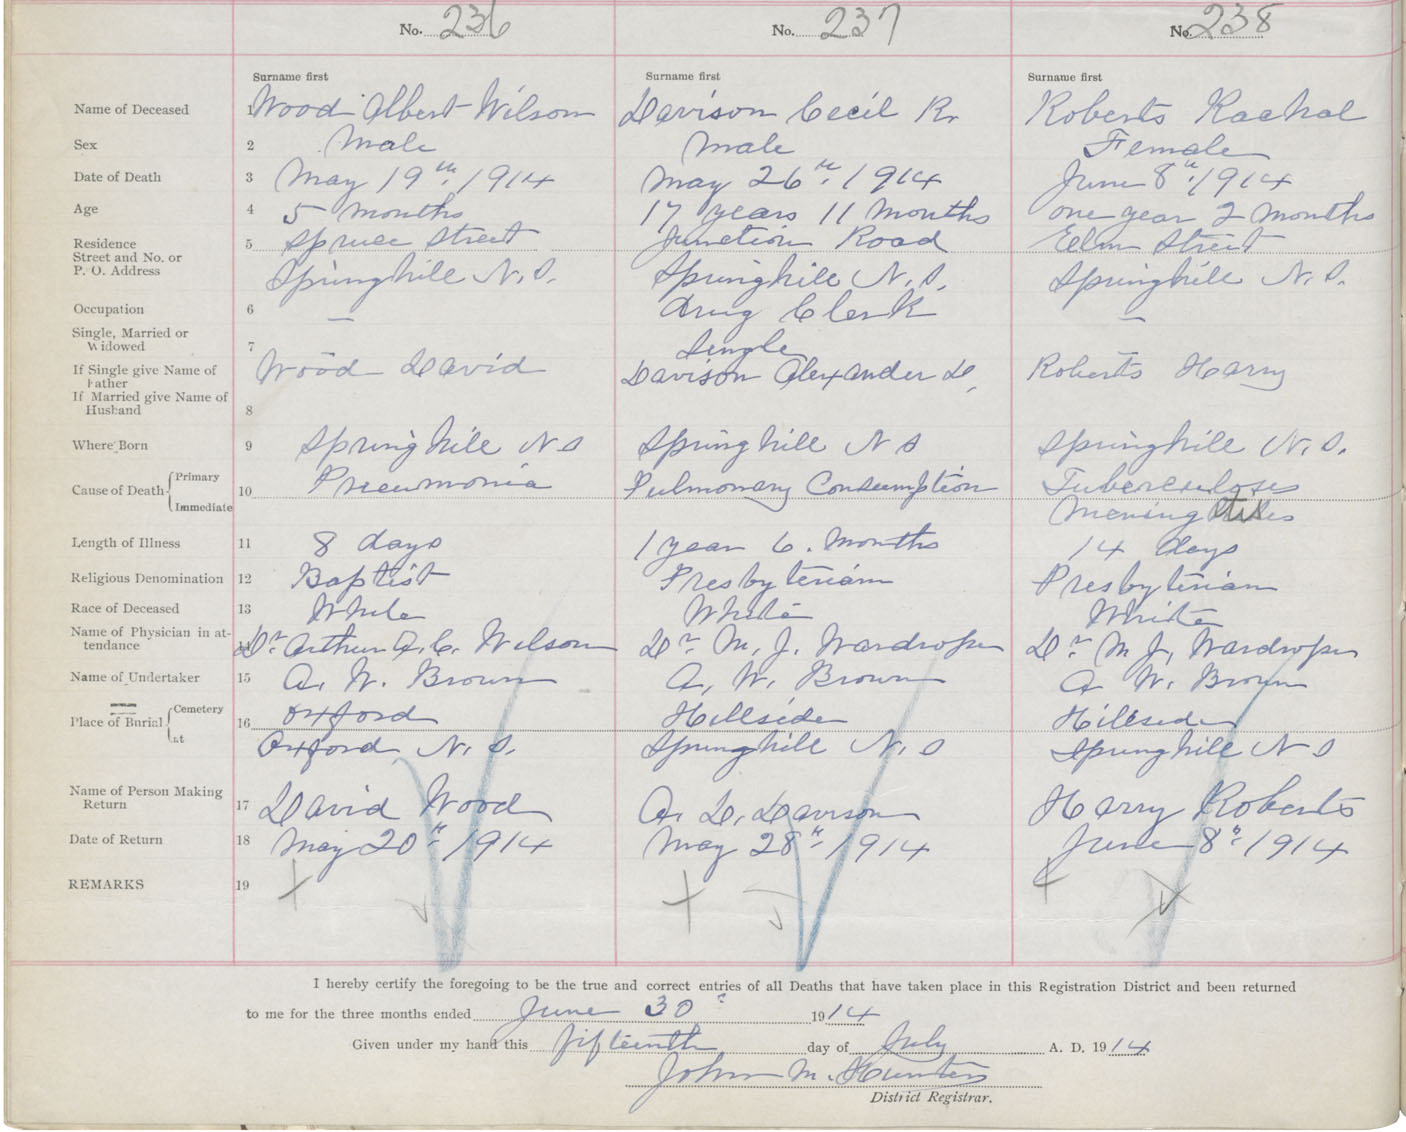 No. 236 No. 237 No. 238
Surname first Surname first Surname first
Name of Deceased 1 Wood Albert Wilson Davison Cecil R. Roberts Rachal
Sex 2 Male Male Female
Date of Death 3 May 19th, 1914 May 26th, 1914 June 8th, 1914
Age 4 5 months 17 years 11 Months one year 2 Months
Residence 5 Spruce Street Junction Road Eelm Street
Street and No. or
P. O. Address Springhill N.S. Springhill N.S. Springhill N.S.
Occupation 6 — Drug Clerk —
Single, Married or
Widowed 7 Single
If Single give Name of Wood David Davison Alexander D. Roberts Harry
Father
If Married give Name of
Husband 8
Where Born 9 Springhill N S Springhill N S Springhill N.S.
Cause of Death { Primary 10 Pneumonia Pulmonary Consumption Tuberculoses
Immediate Meningitis
Length of Illness 11 8 days 1 year 6. Months 14 days
Religious Denomination 12 Baptist Presbyterian Presbyterian
Race of Deceased 13 White White White
Name of Physician in at-
tendance 14 Dr. Arthur Q. C. Wilson Dr. M. J. Wardroper Dr. M J. Wardroper
Name of Undertaker 15 A. W. Brown A. W. Brown A W. Brown
Place of Burial { Cemetery 16 Oxford Hillside Hillside
At Oxford N.S. Springhill N.S Springhill N S
Name of Person Making
Return 17 David Wood A. D. Davison Harry Roberts
Date of Return 18 May 20th, 1914 May 28th, 1914 June 8th, 1914
REMARKS 19
I hereby certify the foregoing to be the true and correct entries of all Deaths that have taken place in this Registration District and been returned
to me for the three months ended June 30 1914
Given under my hand this fifteenth day of July A. D. 1914
John M. Hunter
District Registrar.